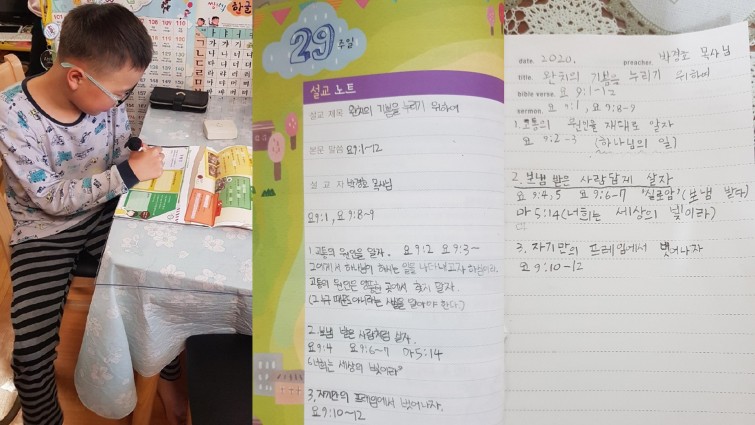 한글
29 주일
설교 노트
설교 제목 완치의 기쁨을 누리기 위하여
본문 말씀 요9:1~12
설 교 자 박정호 목사님
요9:1, 요9:8~9
1. 고통의 원인을 알자. 요9:2 요9:3~
그에게서 하나님의 하시는 일을 나타내고자 하심이라.
고통의 원인은 엉뚱한 곳에서 찾지 말자.
2. 보냄 받은 사람처럼 살자.
요9:4 요9:6~7 마5:14
너희는 세상의 빛이라"
3. 자기만의 프레임에서 벗어나자.
요9:10~12
date. 2020. preacher. 박정호 목사님
title. 완치의 기쁨을 누리기 위하여
bible verse. 요 9:1-12
sermon. 요 9:1, 요 9:8-9
1. 고통의 원인을 제대로 알자
요 9:2-3 (하나님의 일)
2. 보냄 받은 사람답게 살자
요 9:4,5 요 9:6-7 '실로암'(보냄 받다)
마 5:14 (너희는 세상의 빛이라)
3. 자기만의 프레임에서 벗어나자
요 9:10-12